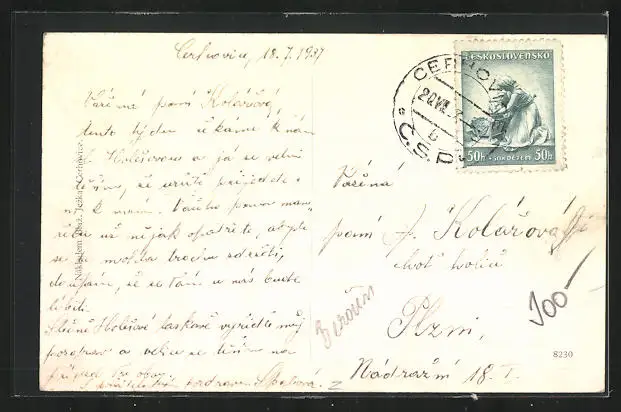 Cerhovice, 18.7.1937
Vážená paní Kolářová,
tento týden čekáme k nám
Holešovou a já se velmi
těším, že určitě přijedete
k nám. Vašeho pana man-
žela už nějak opatříte, abyste
se mohla trochu zdržeti,
doufám, že se Vám u nás bude
líbiti.
Slečně Holešové laskavě vyřiďte můj
pozdrav a velice se těším na
pozdrav
Nákladem Ježka, Cerhovice.
ČESKOSLOVENSKO
50h + 50 DĚTEM 50h
CERHOVICE
20.VII.
Č.S.P.
Vážená
paní A. Kolářová
choť holiče
Plzni,
Nádražní 18.
Beroun
100-
8230